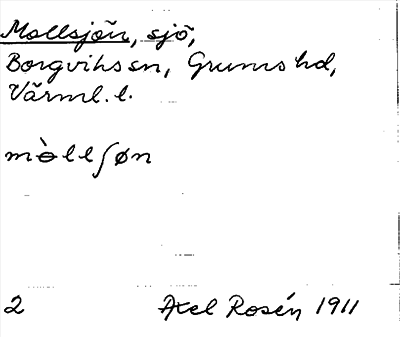 Mollsjön, sjö,
Borgviks sn, Grums hd,
Värml. l.
mɵ̀llʃøn
2 Axel Rosén 1911